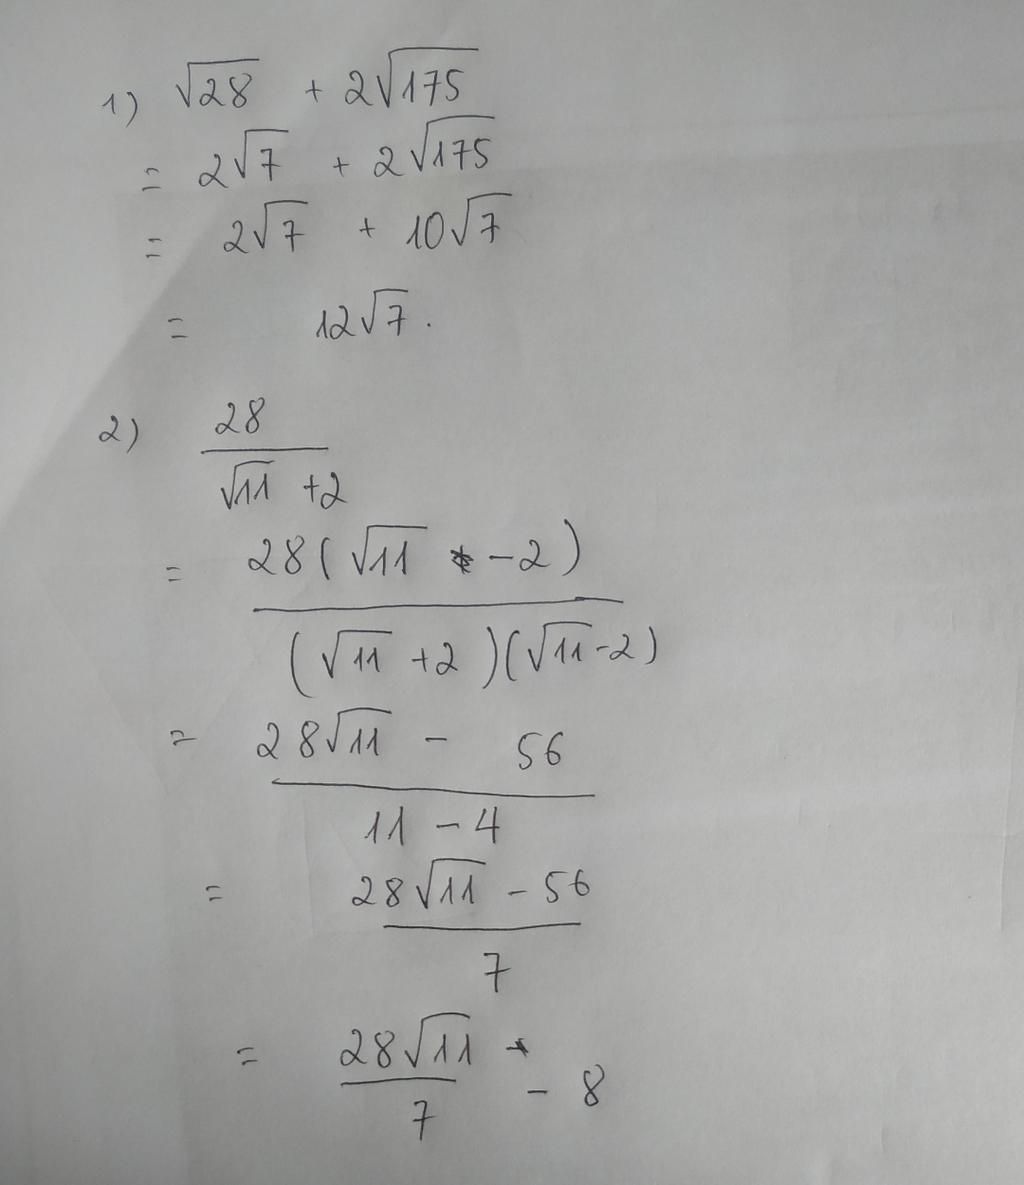 1) √28 + 2√175
= 2√7 + 2√175
= 2√7 + 10√7
= 12√7.
2) 28
√11 + 2
= 28(√11 - 2)
(√11 + 2)(√11 - 2)
= 28√11 - 56
11 - 4
= 28√11 - 56
7
= 28√11 - 8
7